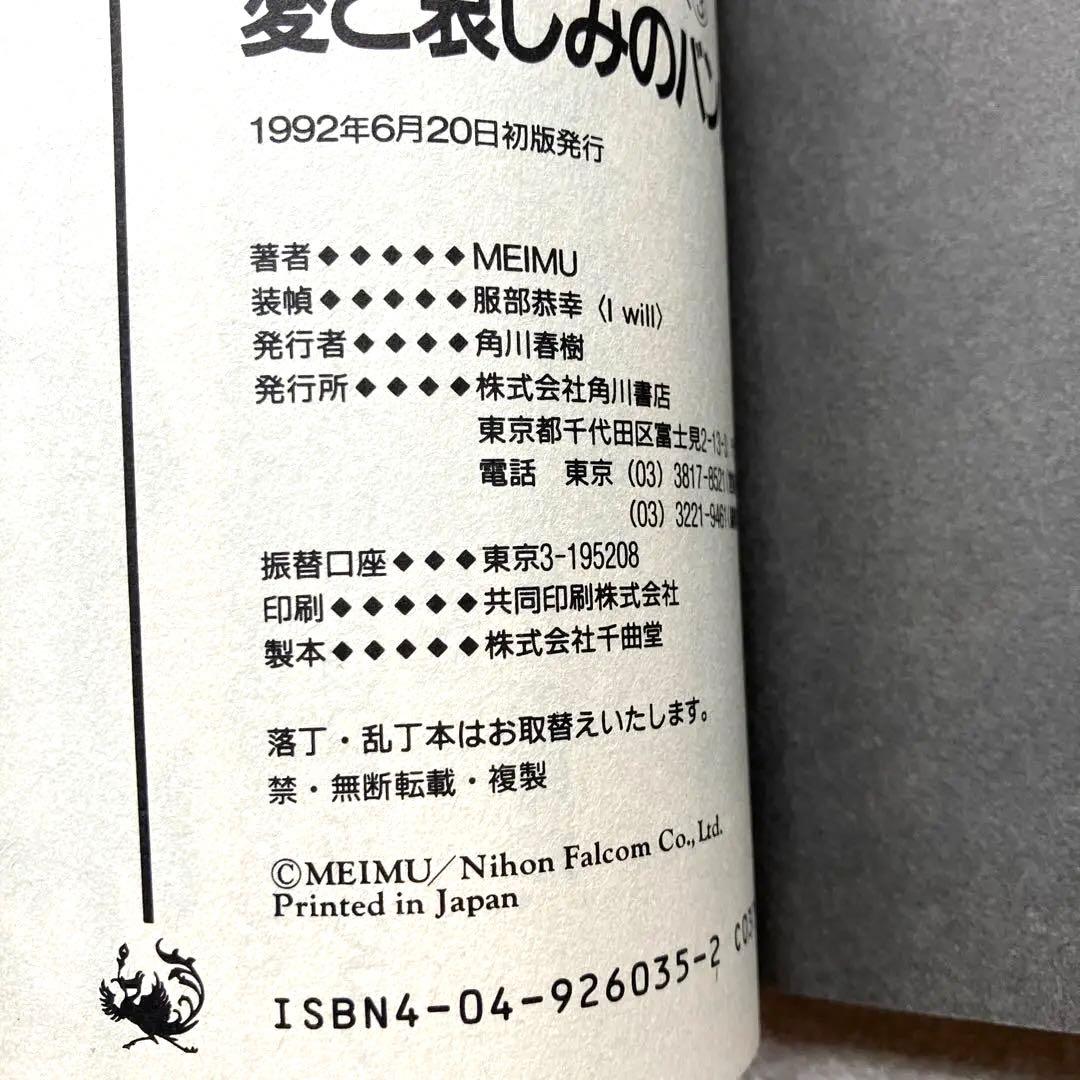 ③
愛と哀しみのバン
1992年6月20日初版発行
著者◆◆◆◆◆MEIMU
装幀◆◆◆◆◆服部恭幸〈I will〉
発行者◆◆◆◆角川春樹
発行所◆◆◆◆株式会社角川書店
東京都千代田区富士見2-13-
電話 東京 (03) 3817-8521
(03) 3221-9461
振替口座◆◆◆東京3-195208
印刷◆◆◆◆◆共同印刷株式会社
製本◆◆◆◆◆株式会社千曲堂
落丁・乱丁本はお取替えいたします。
禁・無断転載・複製
©MEIMU/Nihon Falcom Co., Ltd.
Printed in Japan
ISBN4-04-926035-2 C03